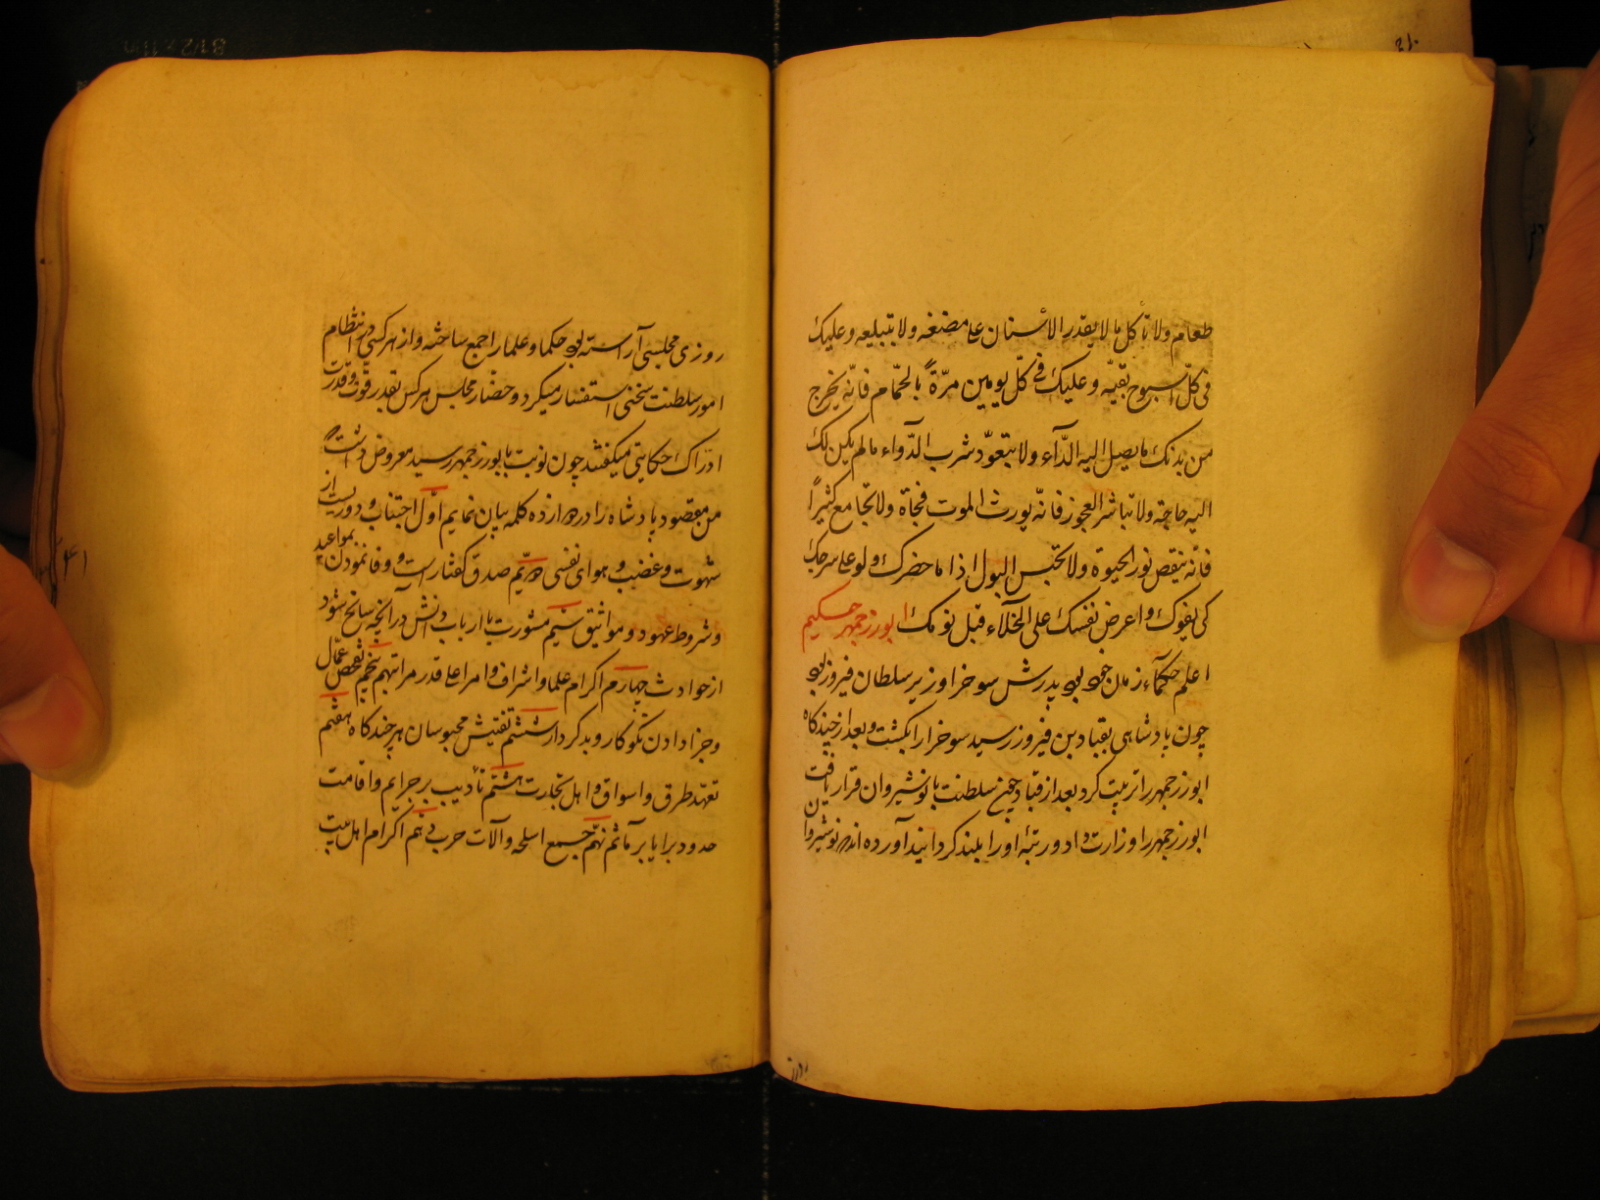 طعام ولا تأكل ما لا يقدر الاسنان على مضغه ولا تبتلعه وعليك
فی كلّ اسبوع بقيّه وعليك فی كلّ يومين مرّةً بالحمّام فانّه يخرج
من بدنك ما يصل اليه الدّآء ولا تتعوّد شرب الدّواء ما لم يكن لك
اليه حاجة ولا تباشر العجوز فانّه يورث الموت فجاة ولا تجامع كثيراً
فانّه ينقص نور الحيوة ولا تحتبس البول اذا ما حضرك ولو على سرجك
کی يفوك واعرض نفسك على الخلاء قبل نومك ابوزرجمهر حکیم
اعلم حکمآء زمان خود بود پدرش سوخرا وزیر سلطان فیروز بود
چون پادشاهی بقباد بن فیروز رسید سوخرا را بکشت و بعد از چندکاه
ابوزرجمهر را تربیت کرد بعد از قباد چون سلطنت بانوشیروان قرار یافت
ابوزرجمهر را وزارت داد و رتبهٔ او را بلند کردانید آورده اند که نوشیروان
روزی مجلسی آراسته بود حکما و علما را جمع ساخته و از هر کسی در انتظام
امور سلطنت سخنی استفسار میکرد و حضار مجلس هر کس بقدر قوت و قدرت
ادراک حکایتی میکفتند چون نوبت بابوزرجمهر رسید معروض داشت که
من مقصود پادشاه را در دوازده کلمه بیان نمایم اول اجتناب و دوریست از
شهوت و غضب و هوای نفسی دویم صدق کفتار است و وفا نمودن بمواعید
و شروط عهود و مواثیق سیم مشورت با ارباب دانش در آنچه سانح شود
از حوادث چهارم اکرام علما و اشراف و امرا علی قدر مراتبهم پنجم تفحص عمال
و جزا دادن نکوکار و بدکردار ششم تفتیش محبوسان هر چند کاه هفتم
تعهد طرق و اسواق و اهل تجارت هشتم تأدیب بر جرایم و اقامت
حدود برایا بر مآثم نهم جمع اسلحه و آلات حرب دهم اکرام اهل بیت
۴۱